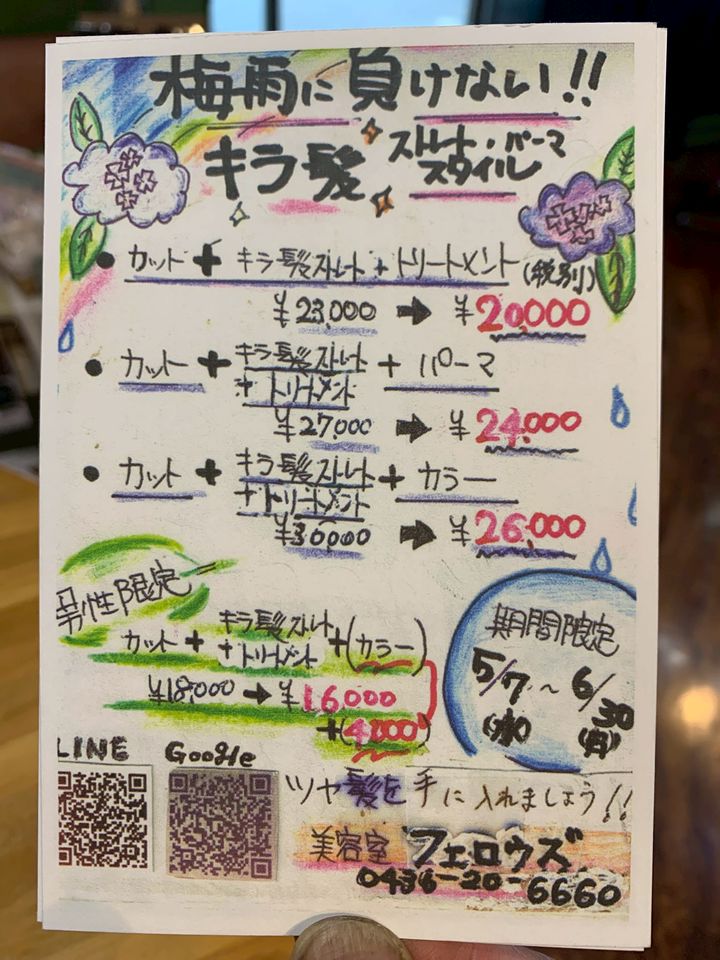 梅雨に負けない!!
キラ髪 ストレート・パーマ
スタイル
• カット + キラ髪ストレート + トリートメント (税別)
¥23,000 → ¥20,000
• カット + キラ髪ストレート + パーマ
+ トリートメント
¥27,000 → ¥24,000
• カット + キラ髪ストレート + カラー
+ トリートメント
¥30,000 → ¥26,000
男性限定
カット + キラ髪ストレート + (カラー)
+ トリートメント
¥18,000 → ¥16,000
+ (4,000)
期間限定
5/7 〜 6/30
(水) (月)
LINE Google
ツヤ髪を手に入れましょう!!
美容室 フェロウズ
0436-20-6660